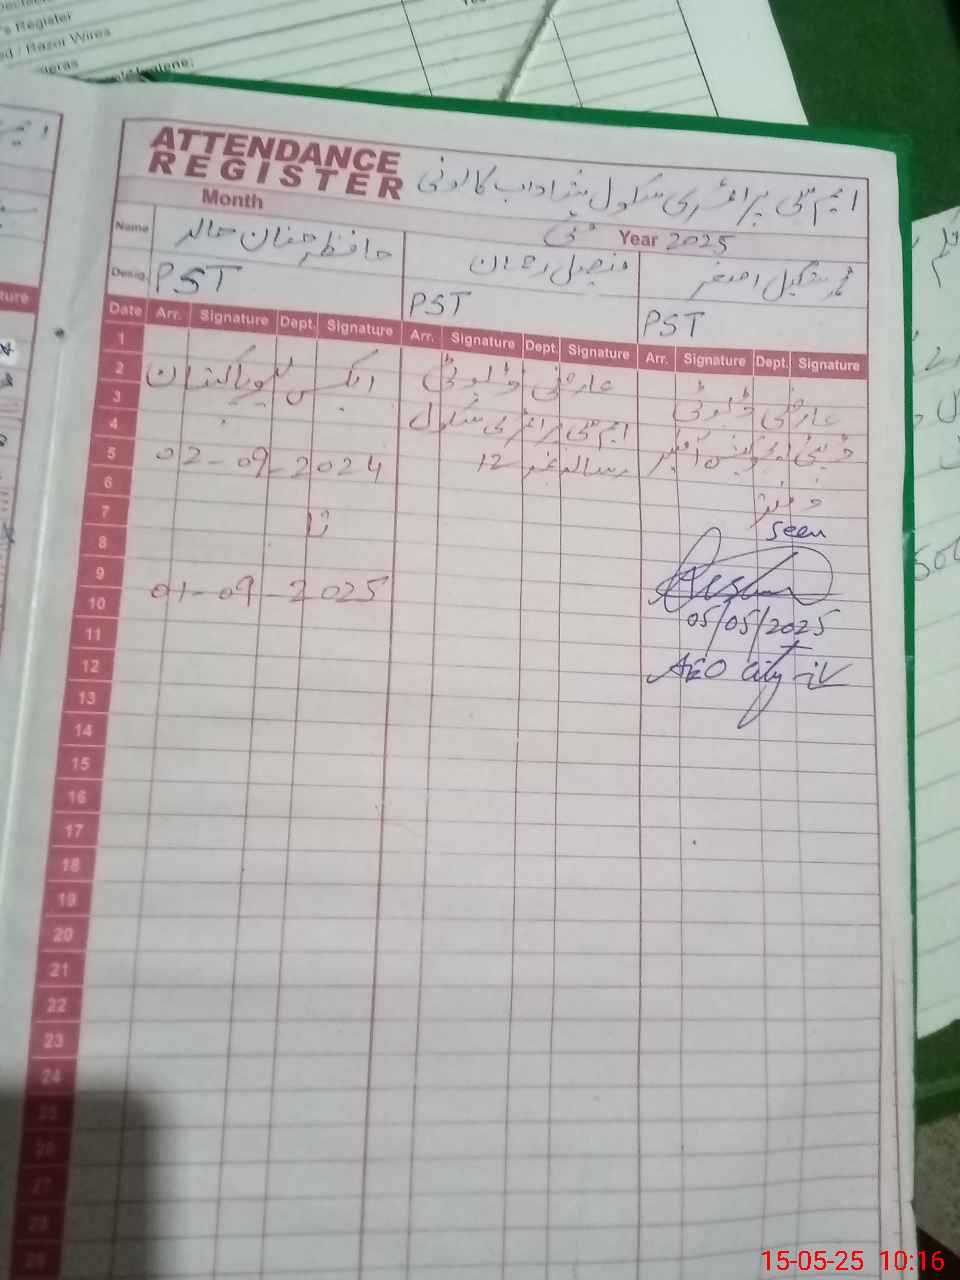 s Register
ed / Razor Wires
meras
ATTENDANCE
REGISTER
ایم سی پرائمری سکول شاداب کالونی
Month
مئی
Year 2025
Name
حافظ حنان خالد
فیصل رحمان
محمد شکیل اصغر
Desig.
PST
PST
PST
Date Arr. Signature Dept. Signature Arr. Signature Dept. Signature Arr. Signature Dept. Signature
1
2
ایکس پاکستان
عارضی ڈیوٹی
عارضی ڈیوٹی
3
ایم سی پرائمری سکول
4
ڈپٹی ایجوکیشن آفیسر
5
02-09-2024
رسالہ نمبر 12
6
دفتر
7
تا
Seen
8
9
10
01-09-2025
05/05/2025
11
12
AEO City-iv
13
14
15
16
17
18
19
20
21
22
23
24
25
26
27
28
29
ture
15-05-25 10:16